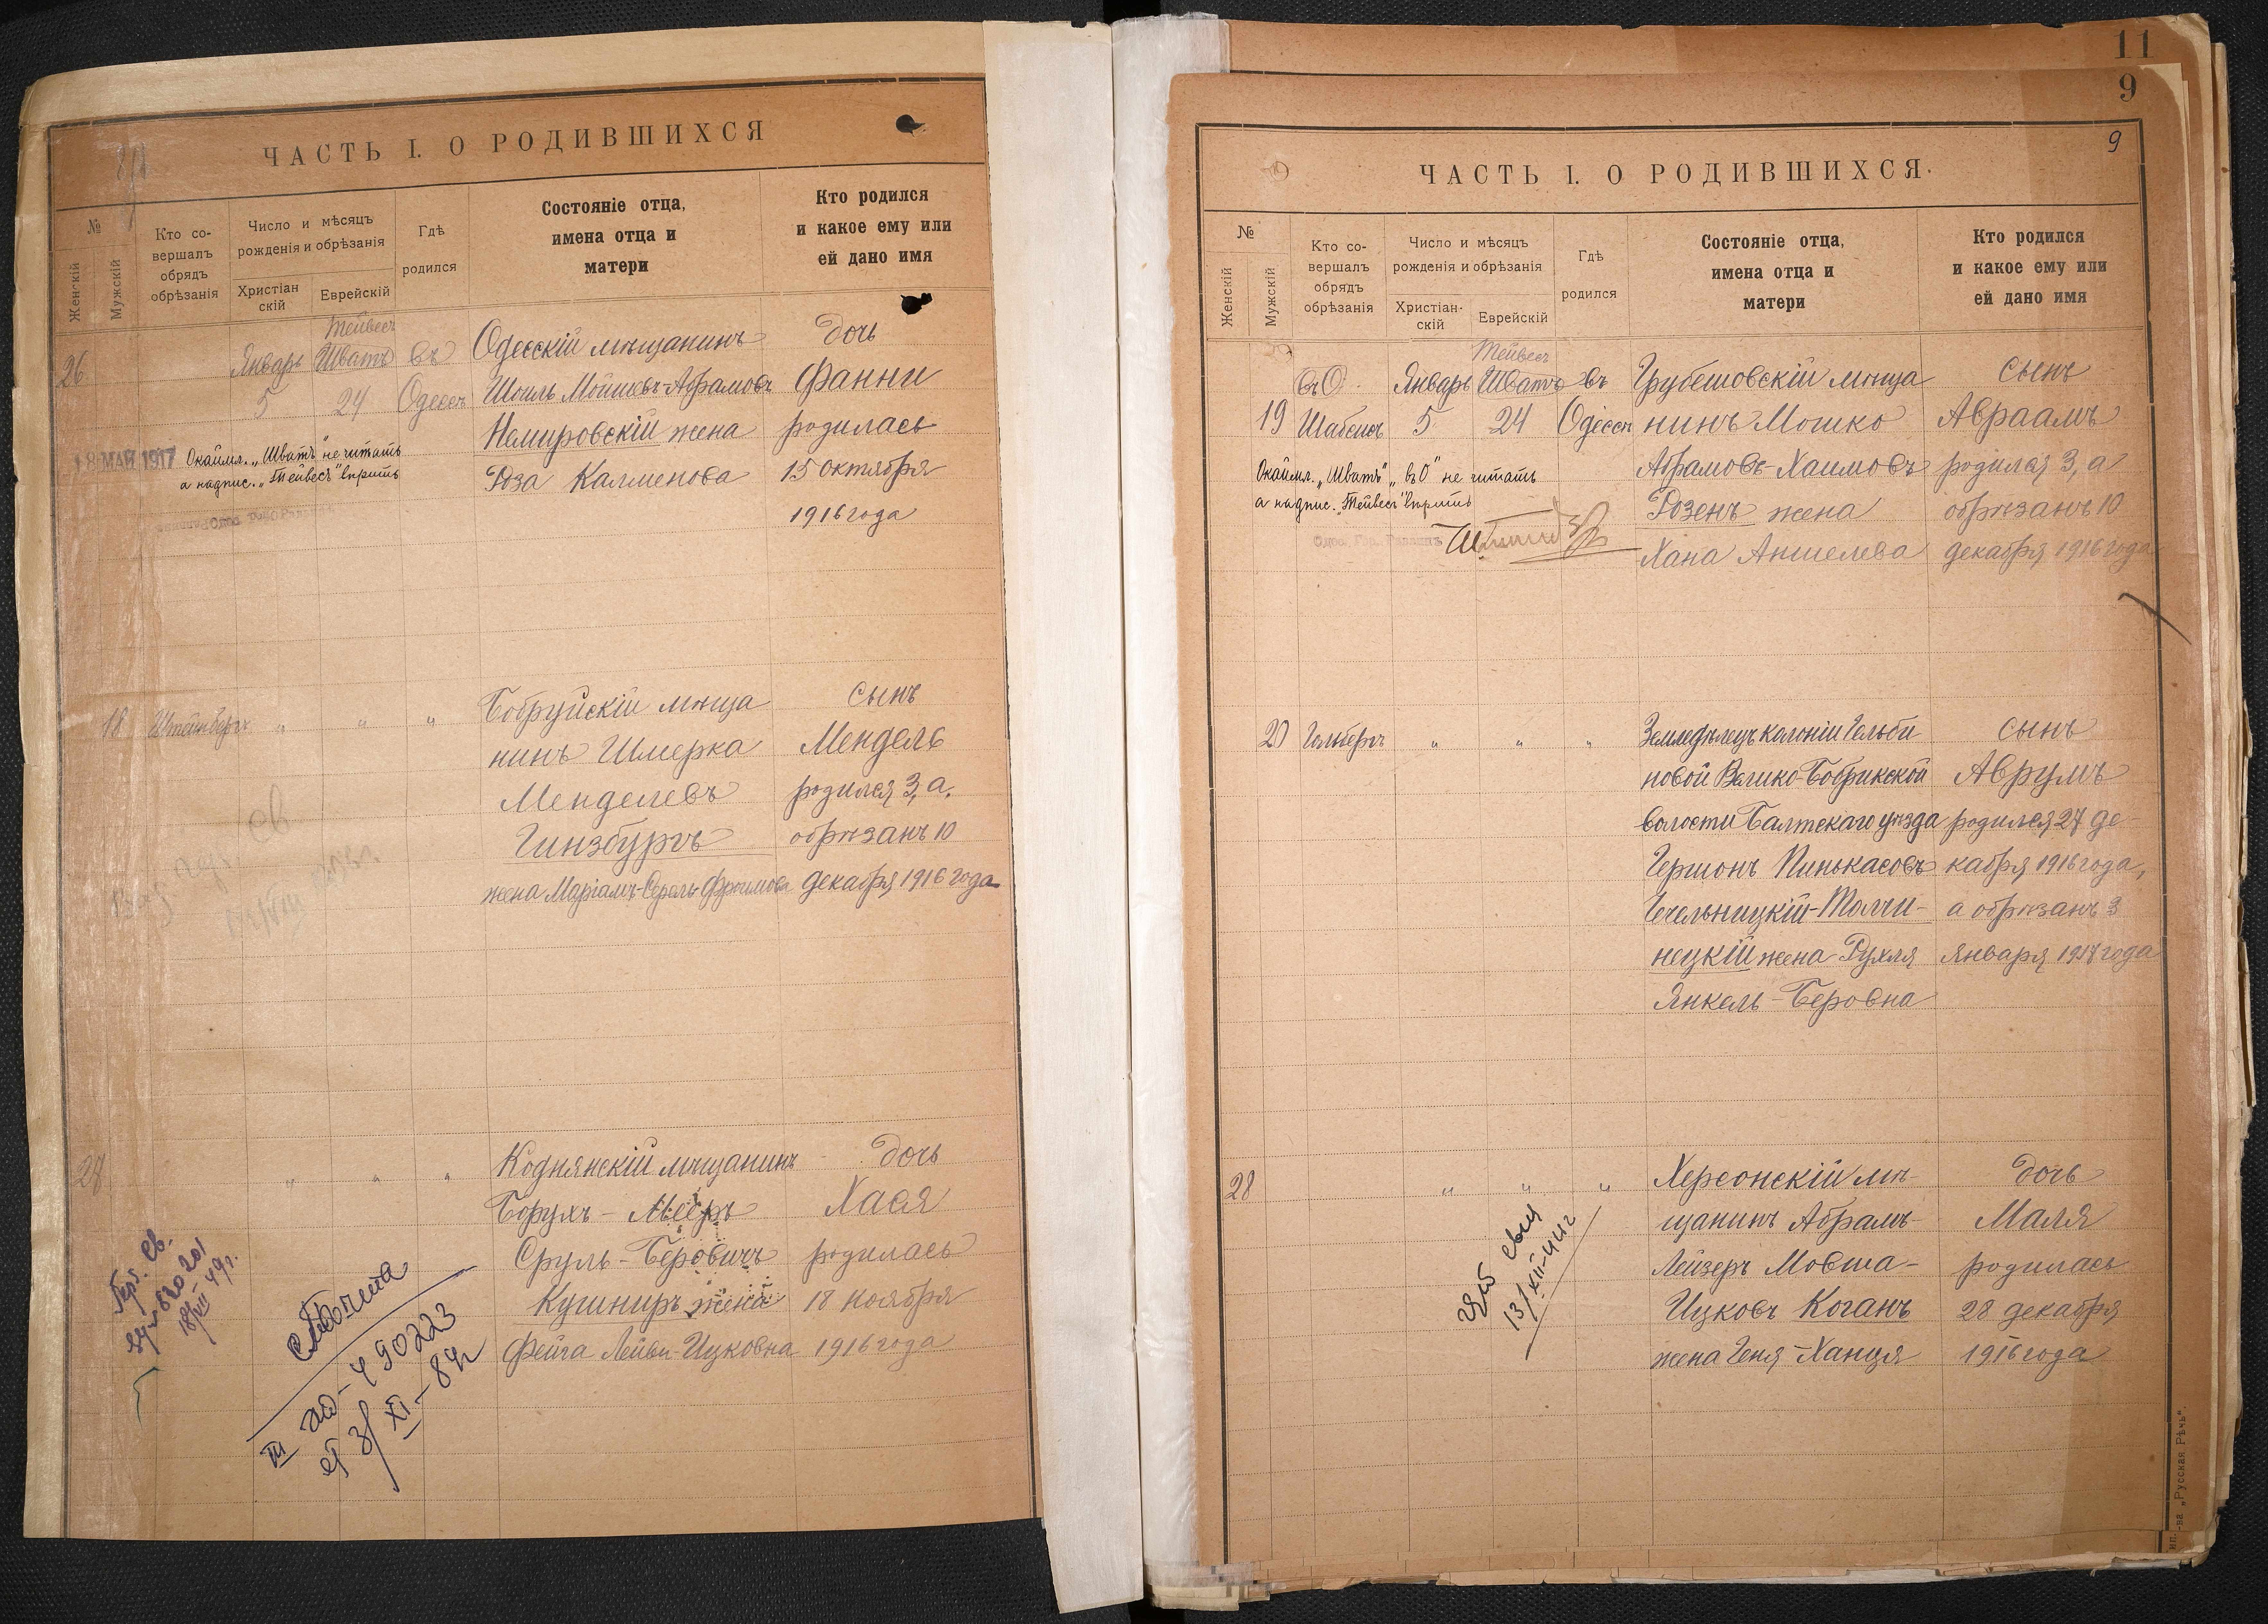 ЧАСТЬ I. О РОДИВШИХСЯ
№
Женскій
Мужскій
Кто со-
вершалъ
обрядъ
обрѣзанія
Число и мѣсяцъ
рожденія и обрѣзанія
Христіан
скій
Еврейскій
Гдѣ
родился
Состояніе отца,
имена отца и
матери
Кто родился
и какое ему или
ей дано имя
26
Январь
5
Тейвесъ
Шватъ
24
въ
Одессѣ
Одесскій мѣщанинъ
Шоиль Мошковъ-Абрамовъ
Немировскій жена
Роза Калменова
дочь
Фанни
родилась
15 октября
1916 года
18 МАЯ 1917
Окаймл. „Шватъ" не читать
а надпис. „Тейвесъ" вѣрить
18
Штейнбергъ
"
"
"
Бобруйскій мѣща
нинъ Шмерка
Менделевъ
Гинзбургъ
жена Маріамъ-Сораль Фроимова
сынъ
Мендель
родился 3, а
обрѣзанъ 10
декабря 1916 года
27
"
"
"
Коднянскій мѣщанинъ
Борухъ-Мееръ
Сруль-Беровичъ
Кушниръ жена
Фейга Лейви-Ицковна
дочь
Хася
родилась
18 ноября
1916 года
18/VIII 49 г.
490223
11
9
9
ЧАСТЬ I. О РОДИВШИХСЯ.
№
Женскій
Мужскій
Кто со-
вершалъ
обрядъ
обрѣзанія
Число и мѣсяцъ
рожденія и обрѣзанія
Христіан-
скій
Еврейскій
Гдѣ
родился
Состояніе отца,
имена отца и
матери
Кто родился
и какое ему или
ей дано имя
19
въ О
Шабсисъ
Январь
5
Тейвесъ
Шватъ
24
въ
Одессѣ
Грубешовскій мѣща
нинъ Мошко
Абрамовъ-Хаимовъ
Розенъ жена
Хана Аншелева
сынъ
Авраамъ
родился 3, а
обрѣзанъ 10
декабря 1916 года
Окаймл. „Шватъ" „въ О" не читать
а надпис. „Тейвесъ" вѣрить
20
Гольбергъ
"
"
"
Земледѣлецъ колоніи Гельби
новой Велико-Бобрикской
волости Балтскаго уѣзда
Гершонъ Пинькасовъ
Чечельницкій-Толчи-
нецкій жена Рухля
Янкель-Беровна
сынъ
Аврумъ
родился 27 де-
кабря 1916 года,
а обрѣзанъ 3
января 1917 года
28
"
"
"
Херсонскій мѣ-
щанинъ Абрамъ-
Лейзеръ Мовша-
Ицковъ Коганъ
жена Геня-Ханця
дочь
Маля
родилась
28 декабря
1916 года
13/XII-44 г
-ва „Русская Рѣчь".